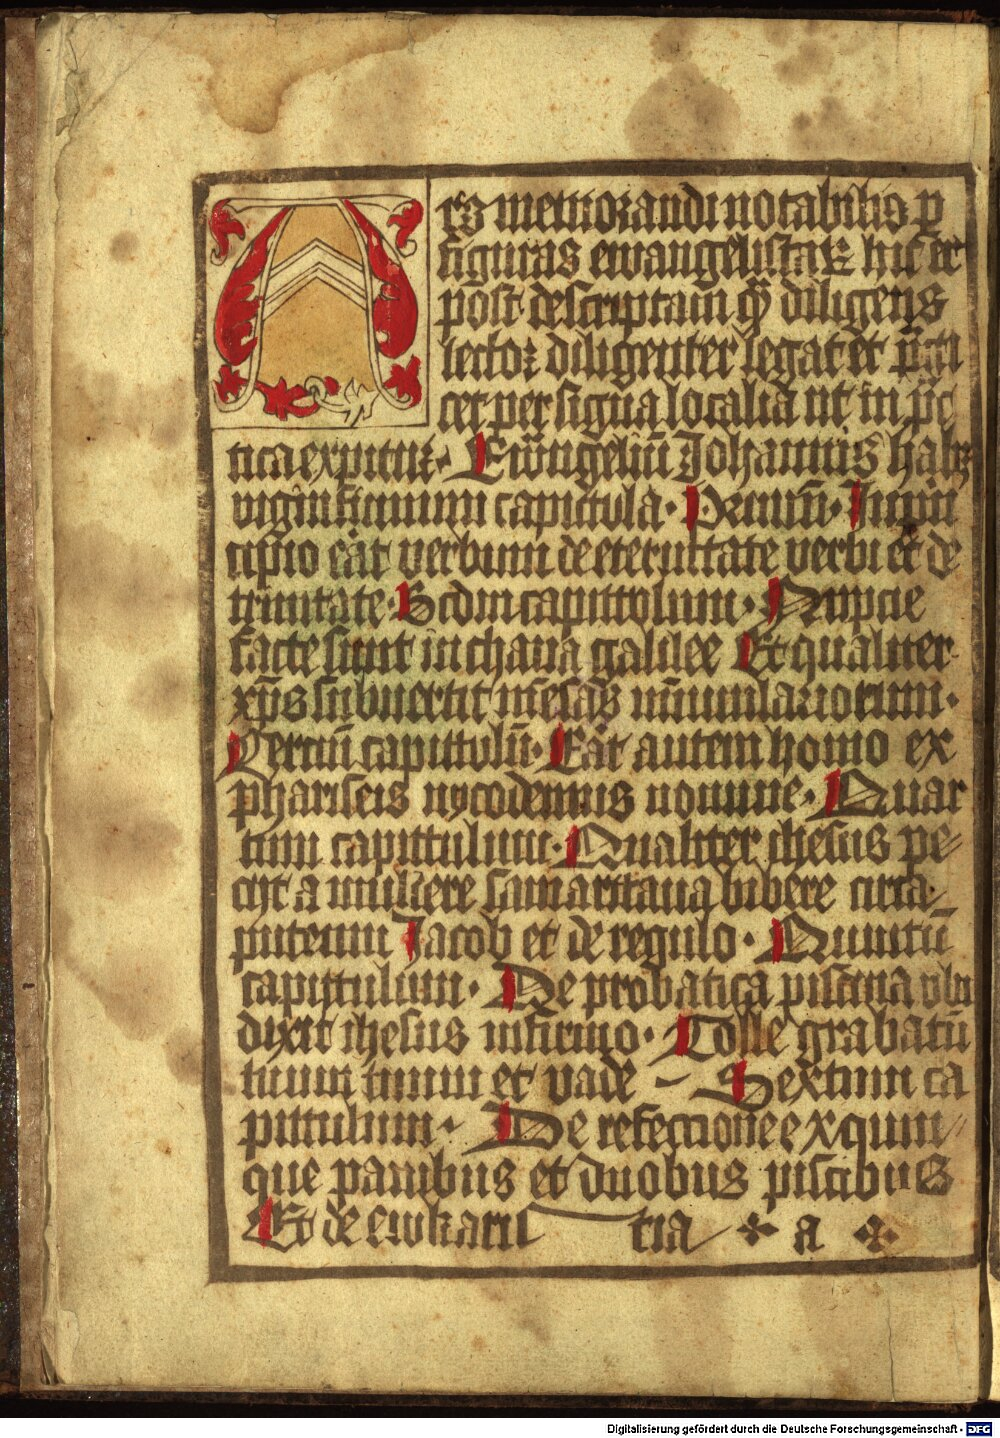 Ars memorandi notabilis p
figuras ewangelistaꝝ hic et
post descriptam q̄ diligens
lector diligenter legat et p̄cti
cet per signa localia ut in p̄c
tica expitur · Ewāgeliū Johannis habꝫ
viginti unum capittula · Primū · In pri
cipio erāt verbum de eternitate verbi et de
trinitate · Scdm capittolum · Nupcie
facte sunt in chana galilee Et qualiter
xp̄s subuertit mēsas nūmulariorum ·
Terciū capittolū · Erāt autem homo ex
phariseis nycodemus nomine · Quar
tum capittulum · Qualiter ihesus pe
cijt a muliere samaritana bibere circa
puteum Jacob et de regulo · Quintū
capittulum · De probatica piscina vbi
dixit ihesus infirmo · Tolle grabatū
tuum et vade Sextum ca
pittulum · De refectione ex quin
que panibus et duobus piscibus
Et de ewkaris tia a
Digitalisierung gefördert durch die Deutsche Forschungsgemeinschaft - DFG